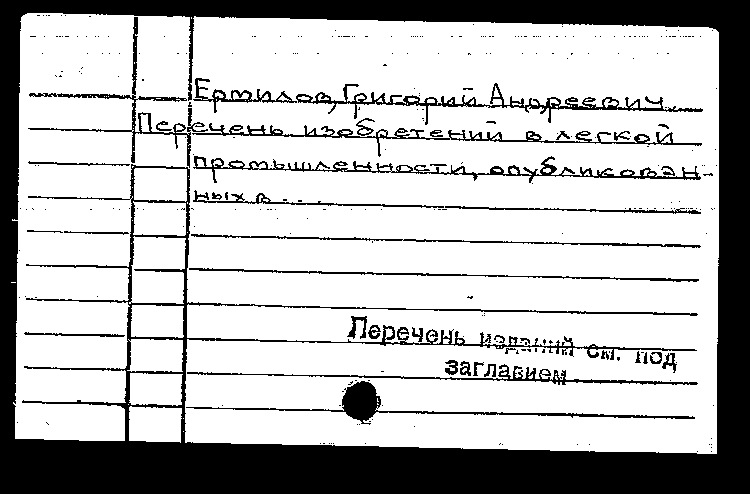 Ермилов, Григорий Андреевич.
Перечень изобретений в легкой
промышленности, опубликован-
ных в ...
Перечень изданий см. под
заглавием